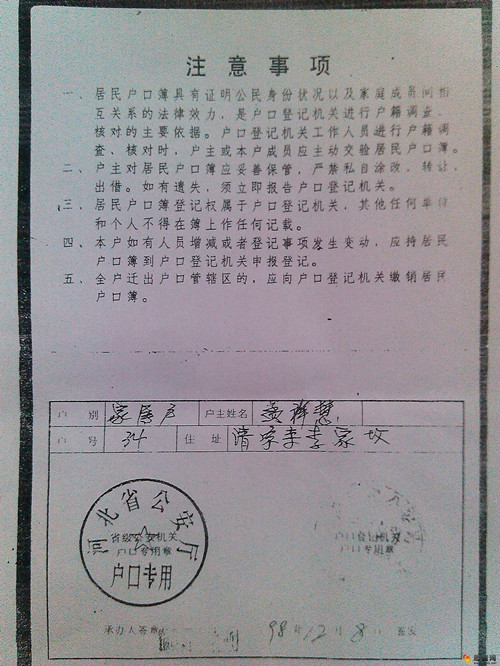 注意事项
一、居民户口簿具有证明公民身份状况以及家庭成员间相
互关系的法律效力，是户口登记机关进行户籍调查、
核对的主要依据。户口登记机关工作人员进行户籍调
查、核对时，户主或本户成员应主动交验居民户口簿。
二、户主对居民户口簿应妥善保管，严禁私自涂改、转让、
出借。如有遗失，须立即报告户口登记机关。
三、居民户口簿登记权属于户口登记机关，其他任何单位
和个人不得在簿上作任何记载。
四、本户如有人员增减或者登记事项发生变动，应持居民
户口簿到户口登记机关申报登记。
五、全户迁出户口管辖区的，应向户口登记机关缴销居民
户口簿。
户别 家居户 户主姓名
户号 34 住址 李家坟
河北省公安厅
省级公安机关
户口专用章
户口专用
户口登记机关
户口专用章
承办人签章 98年12月8日 签发